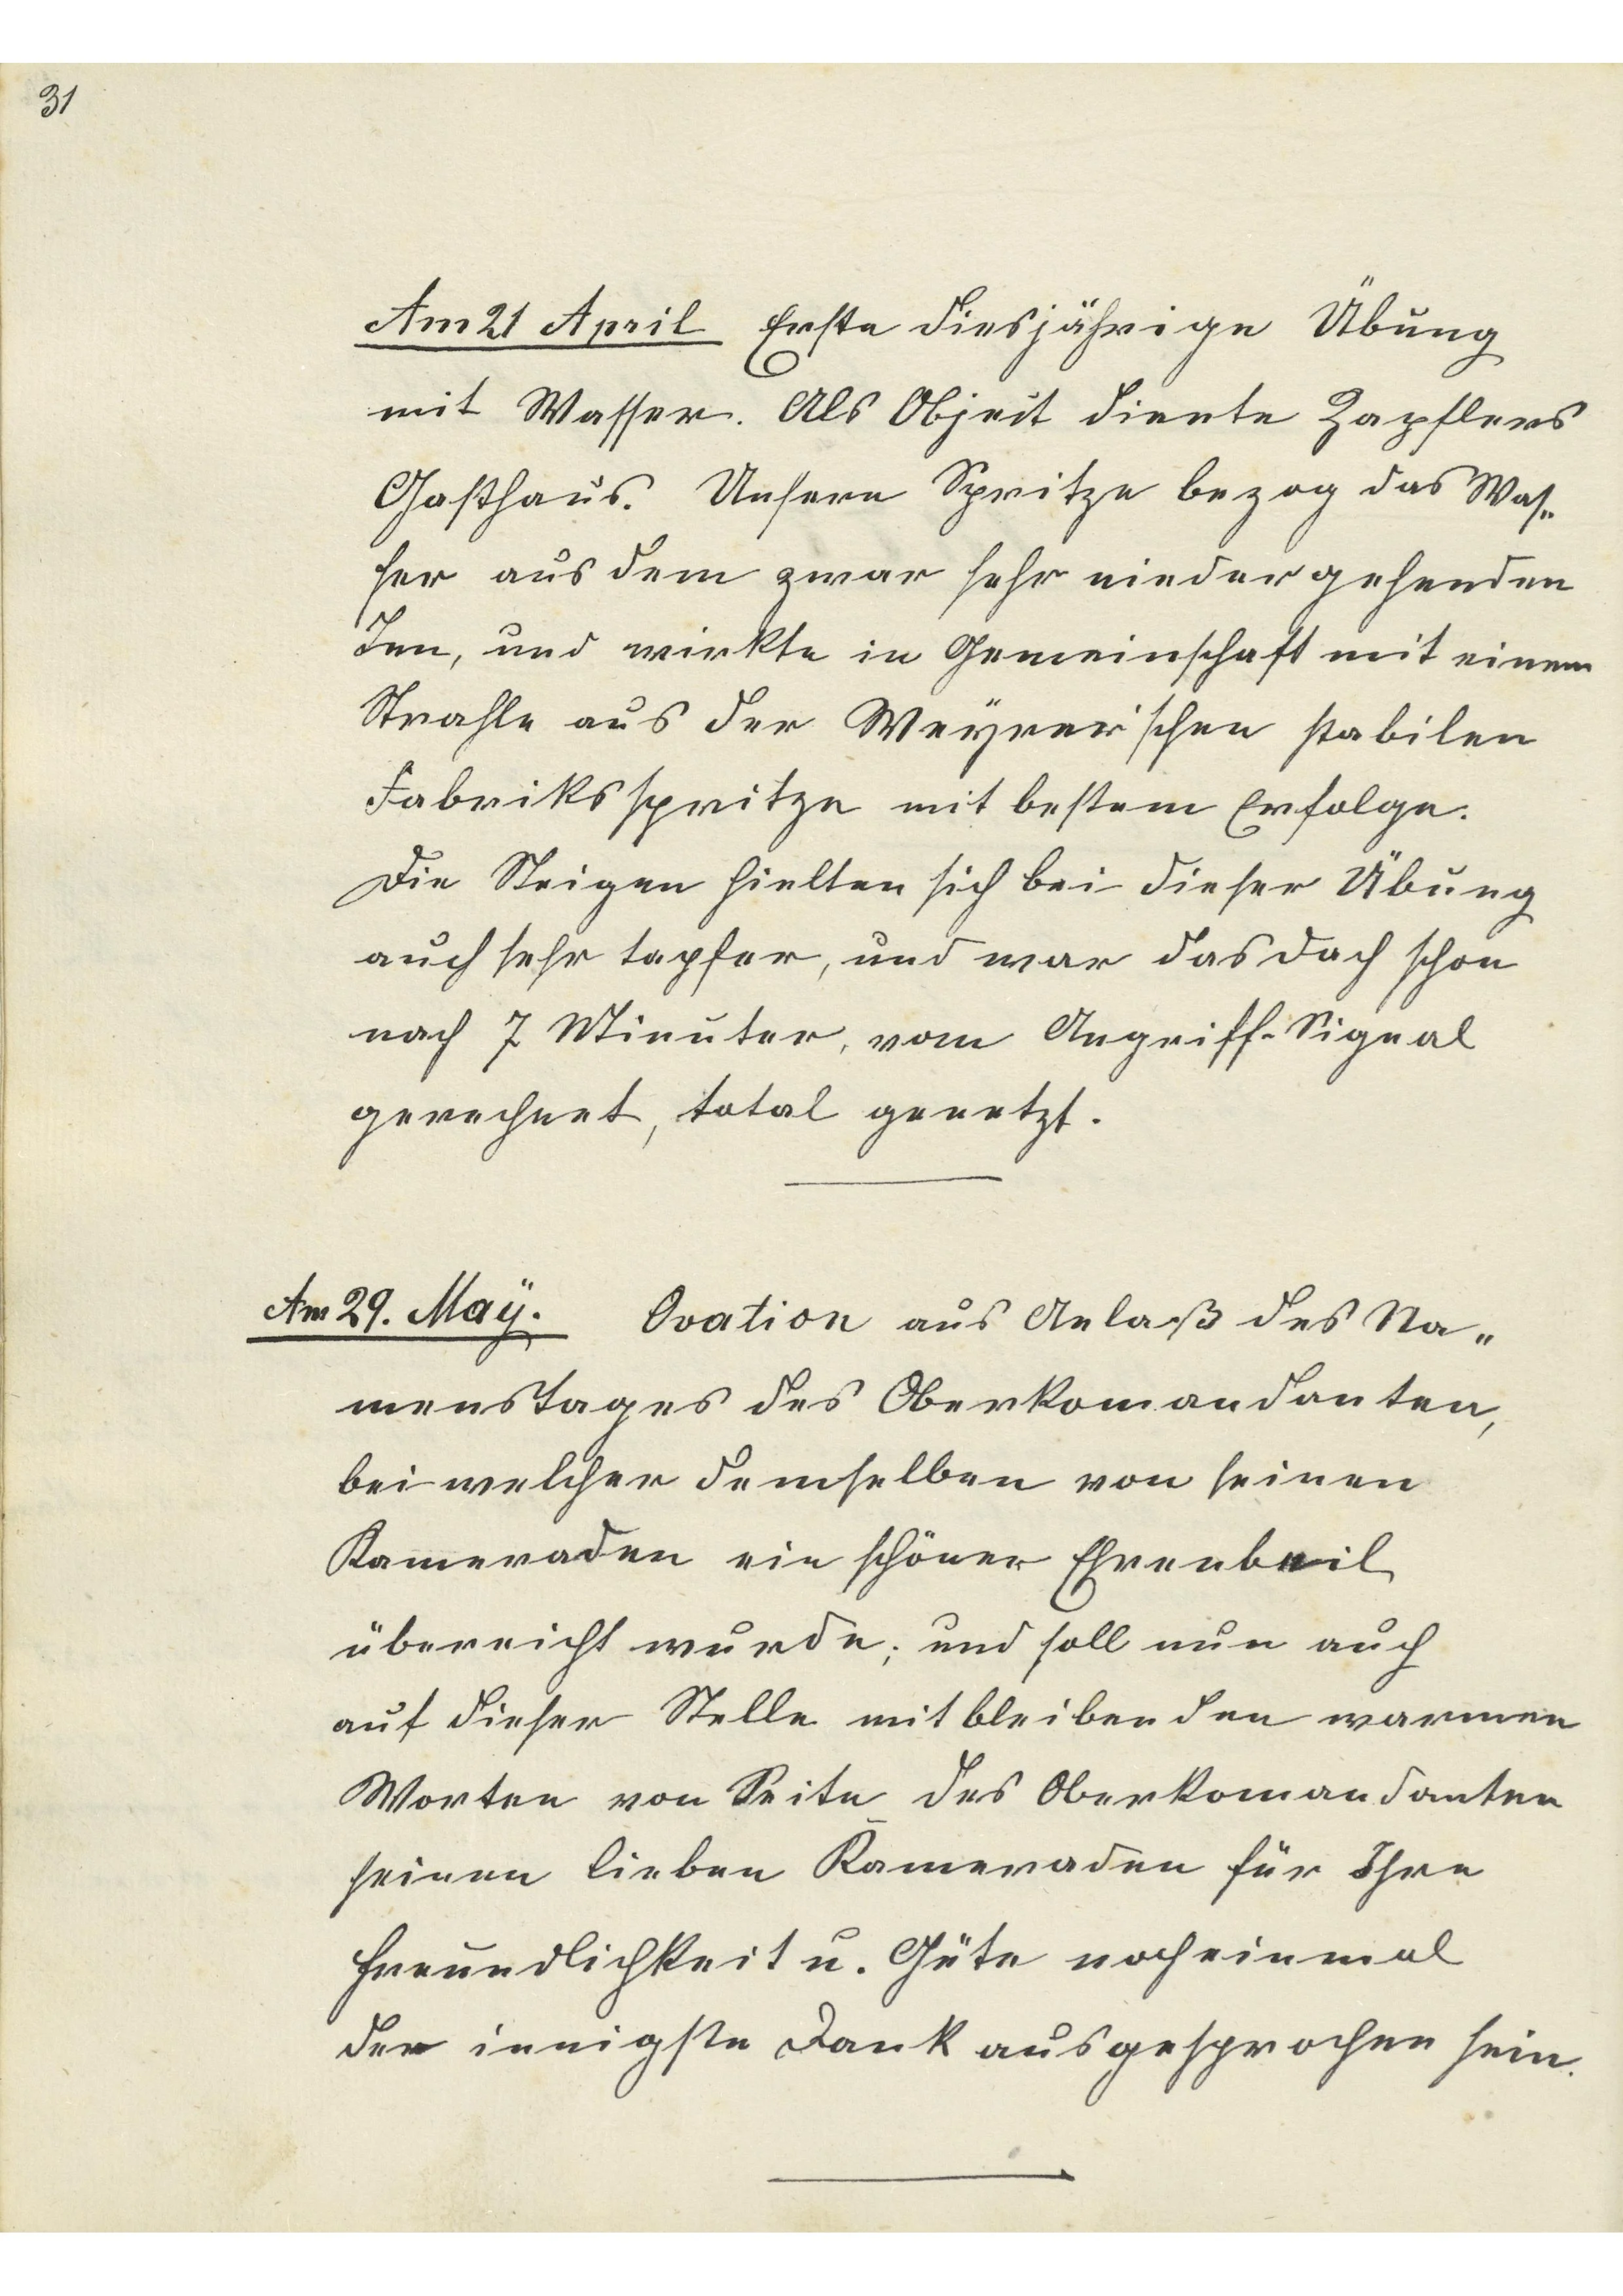 31
Am 21 April Erste diesjährige Übung
mit Wasser. Als Objeit diente Zapflers
Gasthaus. Unsere Spritze bezog das Was„
ser aus dem zwar sehr niedergehenden
Inn, und wirkte in Gemeinschaft mit einem
Strahle aus der Weyrer'schen stabilen
Fabriksspritze mit bestem Erfolge.
Die Steigen hielten sich bei dieser Übung
auch sehr tapfer, und war das Dach schon
nach 7 Minuter, vom Angriff-Signal
gerechnet, total genetzt.
Am 29. Maÿ. Ovation aus Anlaß des Na„
menstages des Oberkomandanten,
bei welcher demselben von seinen
Kameraden ein schöner Ehrenbeil
übereicht wurde; und soll nun auch
auf dieser Stelle mit bleibenden warmen
Worten von Seite des Oberkomandanten
seinen lieben Kameraden für Ihre
Freundlichkeit u. Güte nocheinmal
der innigste Dank ausgesprochen sein.